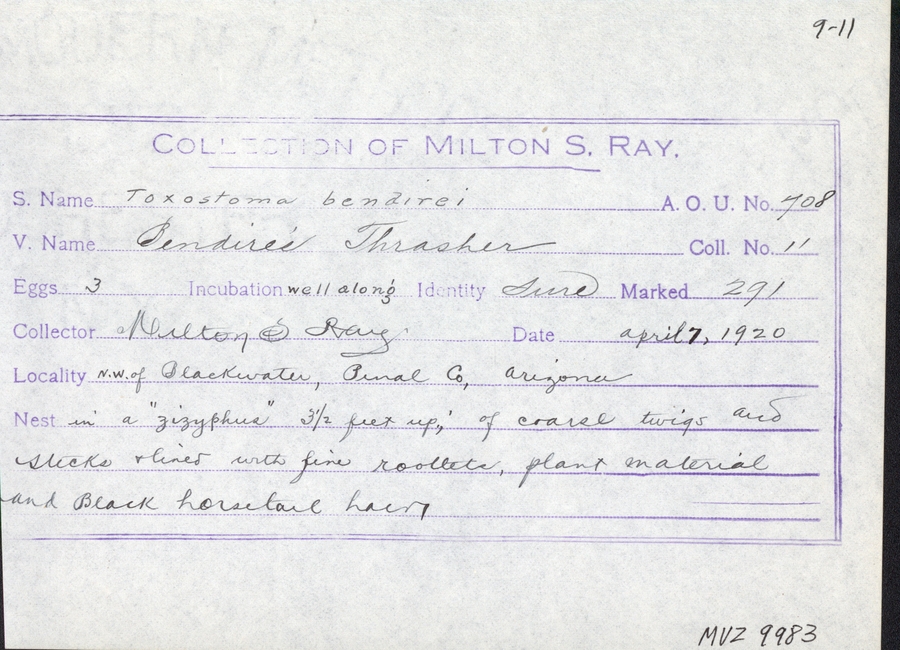 9-11
COLLECTION OF MILTON S. RAY.
S. Name Toxostoma bendirei A. O. U. No. 708
V. Name Bendire's Thrasher Coll. No. 11
Eggs 3 Incubation well along Identity Sure Marked 291
Collector Milton S Ray Date april 7, 1920
Locality N.W. of Blackwater, Pinal Co, arizona
Nest in a "zizyphus" 3 1/2 feet up; of coarse twigs and
sticks & lined with fine rootlets, plant material
and Black horsetail hair
MVZ 9983